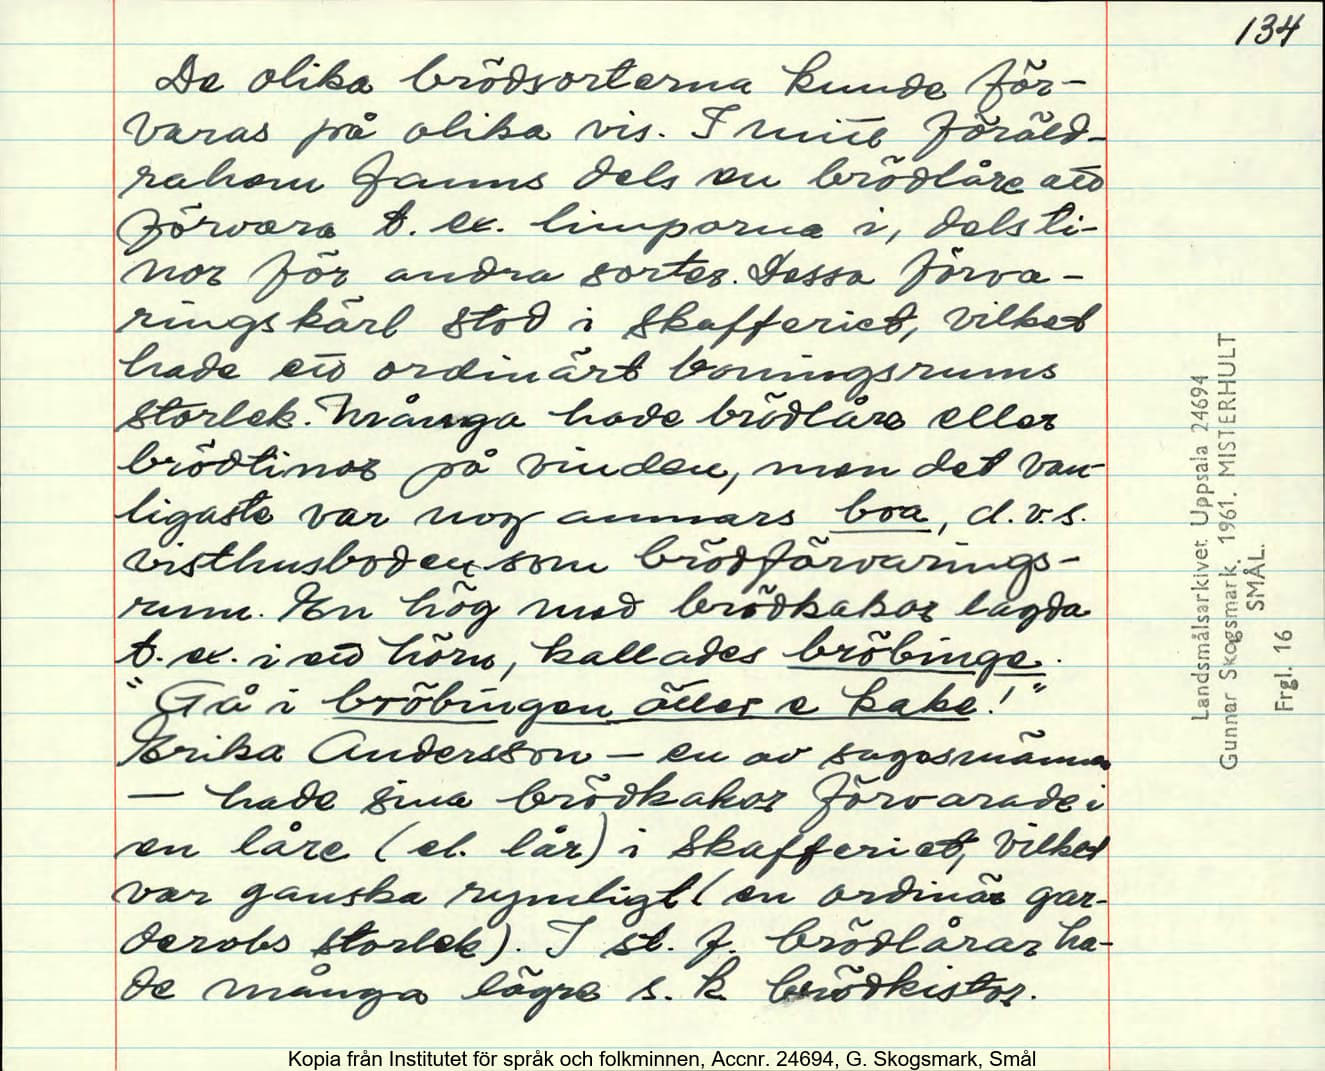 134
De olika brödsorterna kunde för-
varas på olika vis. I mitt föräld-
rahem fanns dels en brödlåre att
förvara t. ex. limporna i, dels ti-
nor för andra sorter. Dessa förva-
ringskärl stod i skafferiet, vilket
hade ett ordinärt boningsrums
storlek. Många hade brödlåre eller
brödtinor på vinden, men det van-
ligaste var nog annars boa, d.v.s.
visthusboden som brödförvarings-
rum. En hög med brödkakor lagda
t. ex. i ett hörn, kallades bröbinge.
"Gå i bröbingen ätter e kake!"
Erika Andersson – en av sagesmännen
– hade sina brödkakor förvarade i
en låre (el. lår) i skafferiet, vilket
var ganska rymligt (en ordinär gar-
derobs storlek). I st. f. brödlårar ha-
de många lägre s. k. brödkistor.
Landsmålsarkivet Uppsala 24694
Gunnar Skogsmark. 1961. MISTERHULT
SMÅL.
Frgl. 16
Kopia från Institutet för språk och folkminnen, Accnr. 24694, G. Skogsmark, Smål